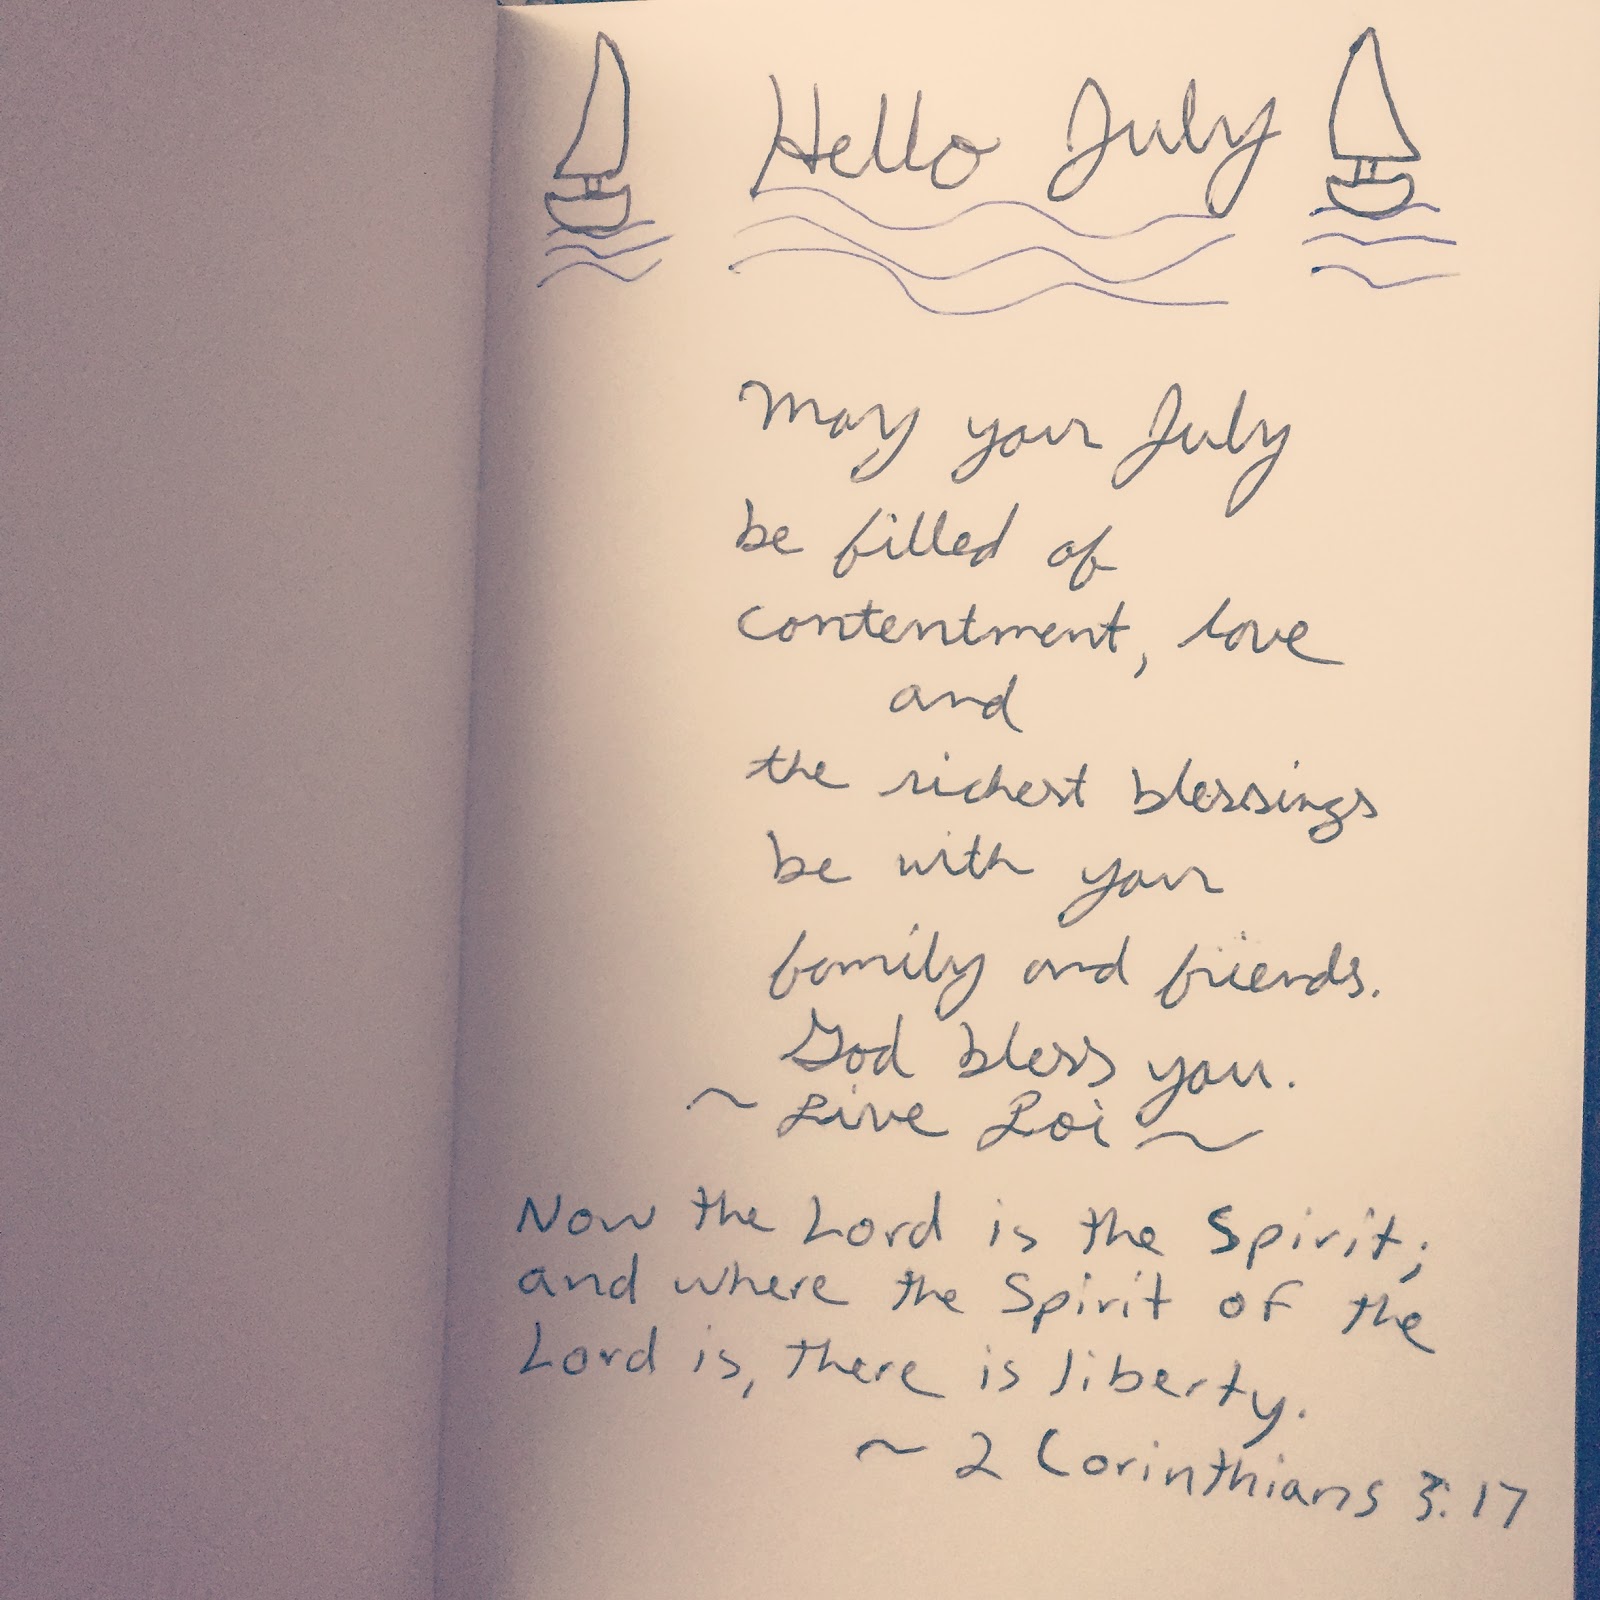 Hello July
May your July
be filled of
contentment, love
and
the richest blessings
be with your
family and friends.
God bless you.
~ Live Loi ~
Now the Lord is the Spirit;
and where the Spirit of the
Lord is, there is liberty.
~ 2 Corinthians 3:17